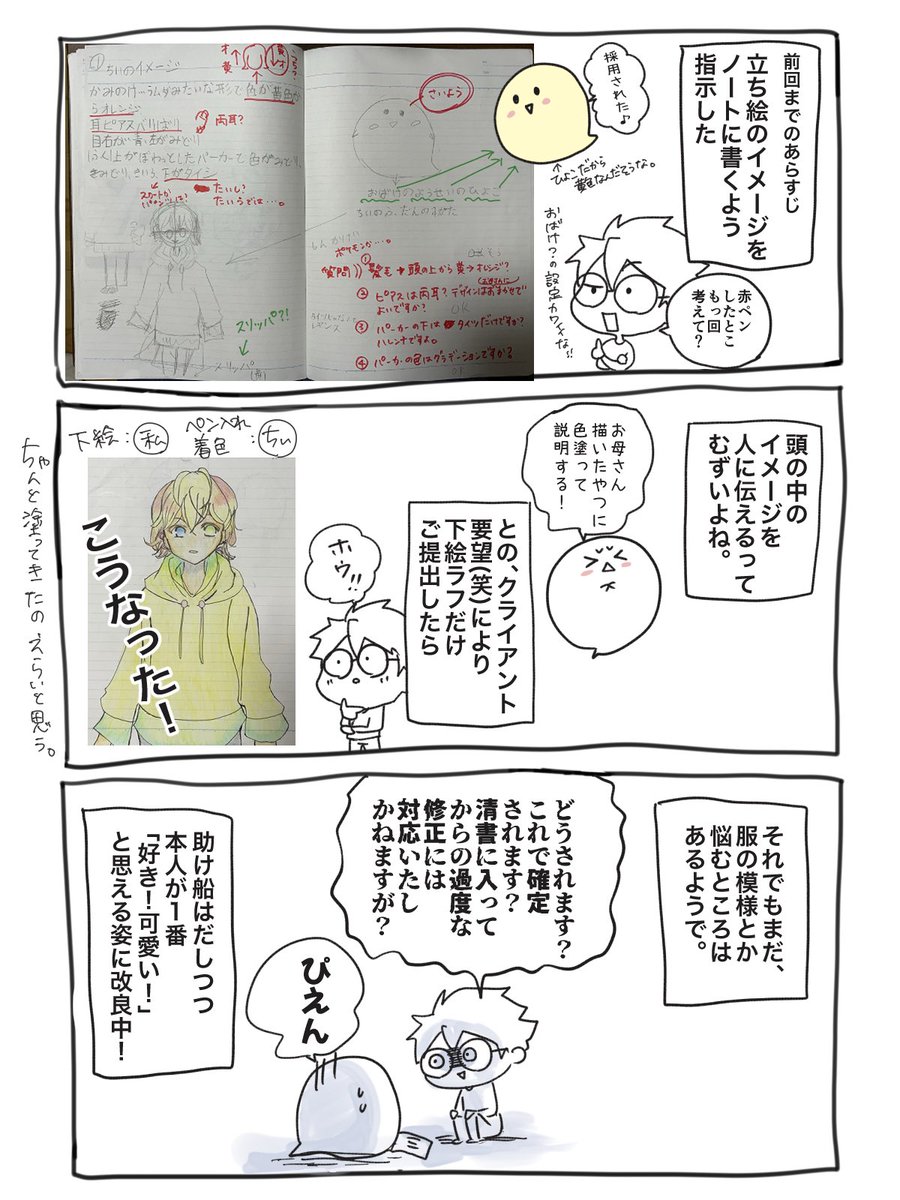 前回までのあらすじ
立ち絵のイメージを
ノートに書くよう
指示した
採用された♪
↑ひよこだから
黄色なんだそうな。
おばけ?の設定カワイイな!!
赤ペン
したとこ
もっ回
考えて?
① ちいのイメージ
さいよう
耳ピアスバリばり
両耳?
おばけのようせいのひよこ
スリッパ?!
スリッパ
ポケモンか…。
質問
① 髪毛→頭の上から黄→オレンジ?
② ピアスは両耳?デザインはおまかせで
よいですか?
OK
③ パーカーの下は タイツだけですか?
ハレンチですよ。
④ パーカーの色はグラデーションですか?
頭の中の
イメージを
人に伝えるって
むずいよね。
お母さん
描いたやつに
色塗って
説明する!
との、クライアント
要望(笑)により
下絵ラフだけ
ご提出したら
ホウ!!
下絵:私
ペン入れ
着色:ちい
こうなった!
ちゃんと塗ってきたの、えらいと思う。
それでもまだ、
服の模様とか
悩むところは
あるようで。
どうされます?
これで確定
されます?
清書に入って
からの過度な
修正には
対応いたし
かねますが?
ぴえん
助け船はだしつつ
本人が1番
「好き!可愛い!」
と思える姿に改良中!